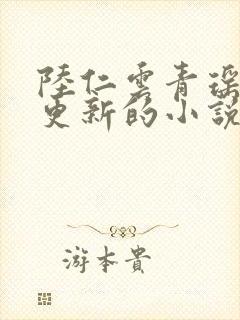 陸仁雲青瑶
更新的小説
游本貴